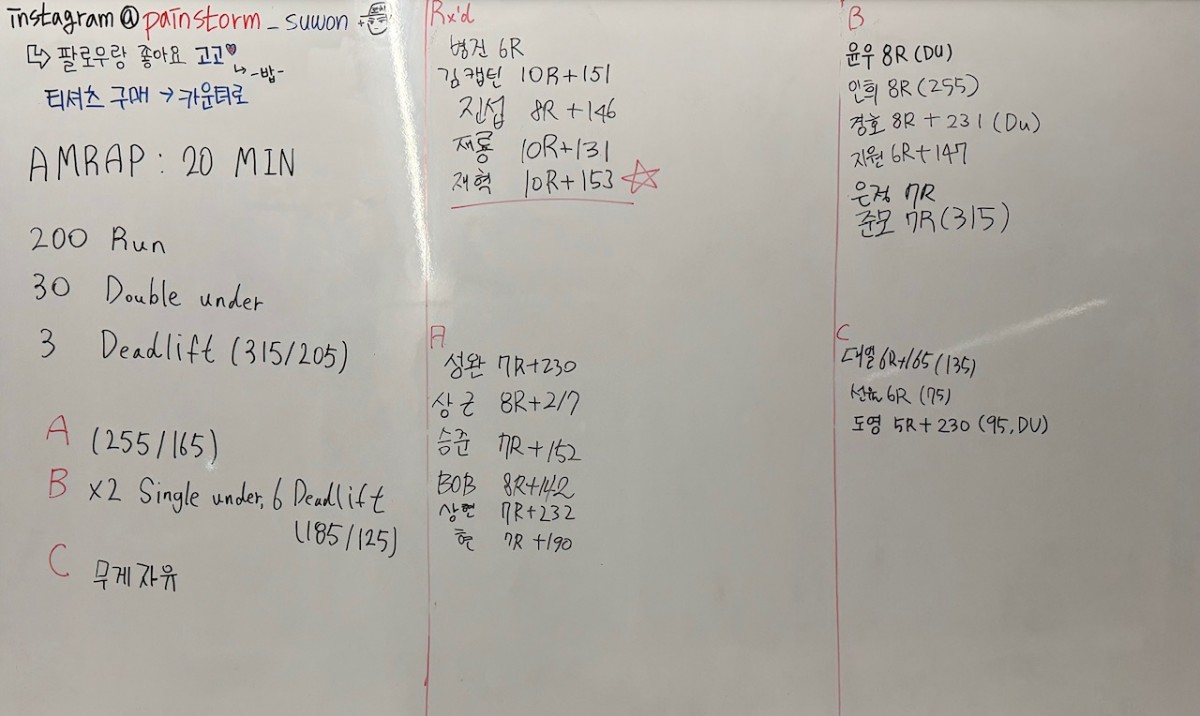 instagram@painstorm_suwon
팔로우랑 좋아요 고고
-밥-
티셔츠 구매 → 카운터로
AMRAP : 20 MIN
200 Run
30 Double under
3 Deadlift (315/205)
A (255/165)
B x2 Single under, 6 Deadlift
(185/125)
C 무게 자유
Rx'd
병건 6R
김캡틴 10R+151
진섭 8R+146
재룡 10R+131
재혁 10R+153
A
성완 7R+230
상근 8R+217
승준 7R+152
BOB 8R+142
상현 7R+232
현 7R+190
B
윤우 8R (DU)
인희 8R (255)
경호 8R+231 (Du)
지원 6R+147
은정 7R
준모 7R (315)
C
대열 6R+165 (135)
6R (75)
도영 5R+230 (95, DU)